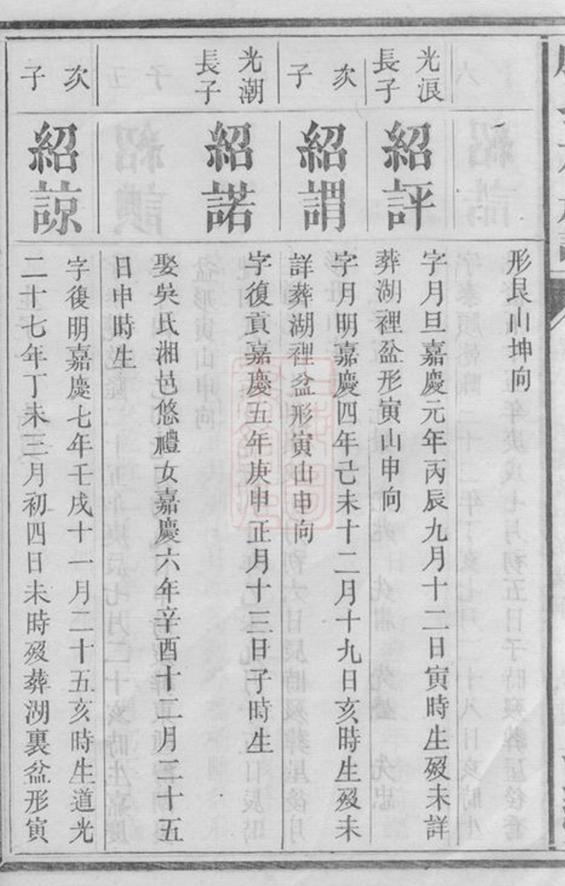 形艮山坤向
光浪長子
紹評
字月旦嘉慶元年丙辰九月十二日寅時生歿未詳
葬湖裡盆形寅山申向
次子
紹謂
字月明嘉慶四年己未十二月十九日亥時生歿未
詳葬湖裡盆形寅山申向
光潮長子
紹諾
字復貢嘉慶五年庚申正月十三日子時生
娶吳氏湘邑悠禮女嘉慶六年辛酉十二月二十五
日申時生
次子
紹諒
字復明嘉慶七年壬戌十一月二十五亥時生道光
二十七年丁未三月初四日未時歿葬湖裏盆形寅